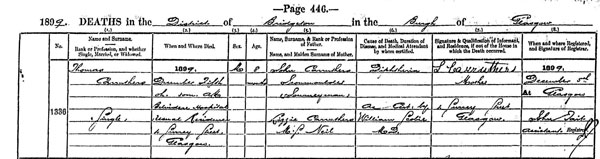 —Page 446.—
1899. DEATHS in the District of Bridgeton in the Burgh of Glasgow
(1.) (2.) (3.) (4.) (5.) (6.) (7.) (8.)
No. Name and Surname. Rank or Profession, and whether Single, Married, or Widowed. When and Where Died. Sex. Age. Name, Surname, & Rank or Profession of Father. Name, and Maiden Surname of Mother. Cause of Death, Duration of Disease, and Medical Attendant by whom certified. Signature & Qualification of Informant, and Residence, if out of the House in which the Death occurred. When and where Registered, and Signature of Registrar.
1336
Thomas
Carruthers
Single.
1899.
December Fifth
Belvidere Hospital
Usual Residence
Surrey Street,
Glasgow.
M
8
months
John Carruthers
Ironmoulder
(Journeyman)
Lizzie Carruthers
M.S. Neil
Diphtheria
As Cert. by
William Leslie
M.D.
L Carruthers
Mother
Surrey Street
Glasgow.
1899.
December 5th
At Glasgow
John
Assistant Registrar